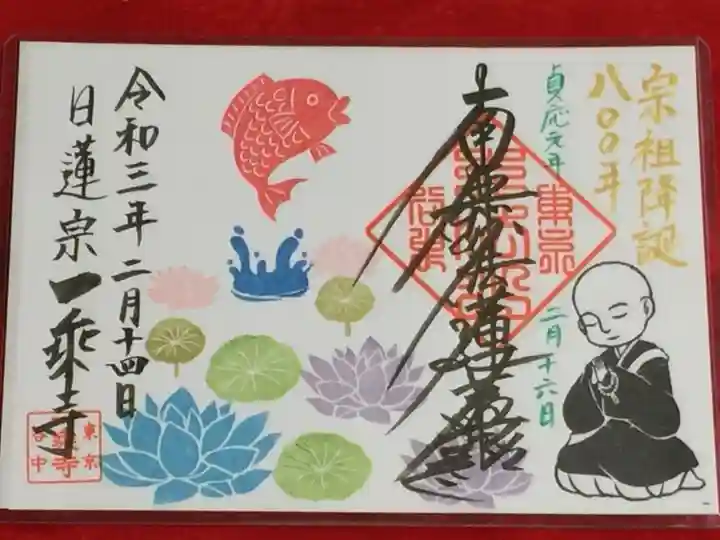 宗祖降誕
八〇〇年
貞応元年
二月十六日
南無妙法蓮華経
令和三年二月十四日
日蓮宗一乗寺
東京
谷中